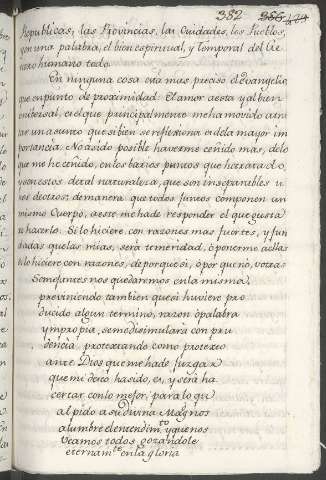 382 386 424
Republicas, las Provincias, las Ciudades, los Pueblos,
y en una palabra, el bien espiritual, y Temporal del Ge
nero humano todo.
En ninguna cosa está mas preciso el evangelio,
que en punto de proximidad. El amor a esta y al bien
universal, es el que principalmente me ha movido a tra
tar un asunto que si bien se reflexiona es de la mayor im
portancia. No ha sido posible haverme ceñido mas, de lo
que me he ceñido, en los varios puntos que he tratado,
por ser estos de tal naturaleza, que son inseparables u
nos de otros; de manera que todos juntos componen un
mismo Cuerpo, a este me hade responder el que gusta
re hacerlo. Si lo hiciere con razones mas fuertes, y fun
dadas que las mias, será temeridad, óponerme a ellas
si lo hiciere con razones, de porque si, ó por que nó, ò otras
Semejantes nos quedaremos en la misma,
previniendo tambien que si huviere pro
ducido algun termino, razon ó palabra
ympropia, se me disimulará con pru
dencia, protextando como protexto
ante Dios que me hade Juzgar
que mi deseo ha sido, es, y será ha
cercar con lo mejor, para lo qu
al pido a su Divina Mag. nos
alumbre el entendim.to y que nos
Veamos todos gozandole
eternam.te en la Gloria